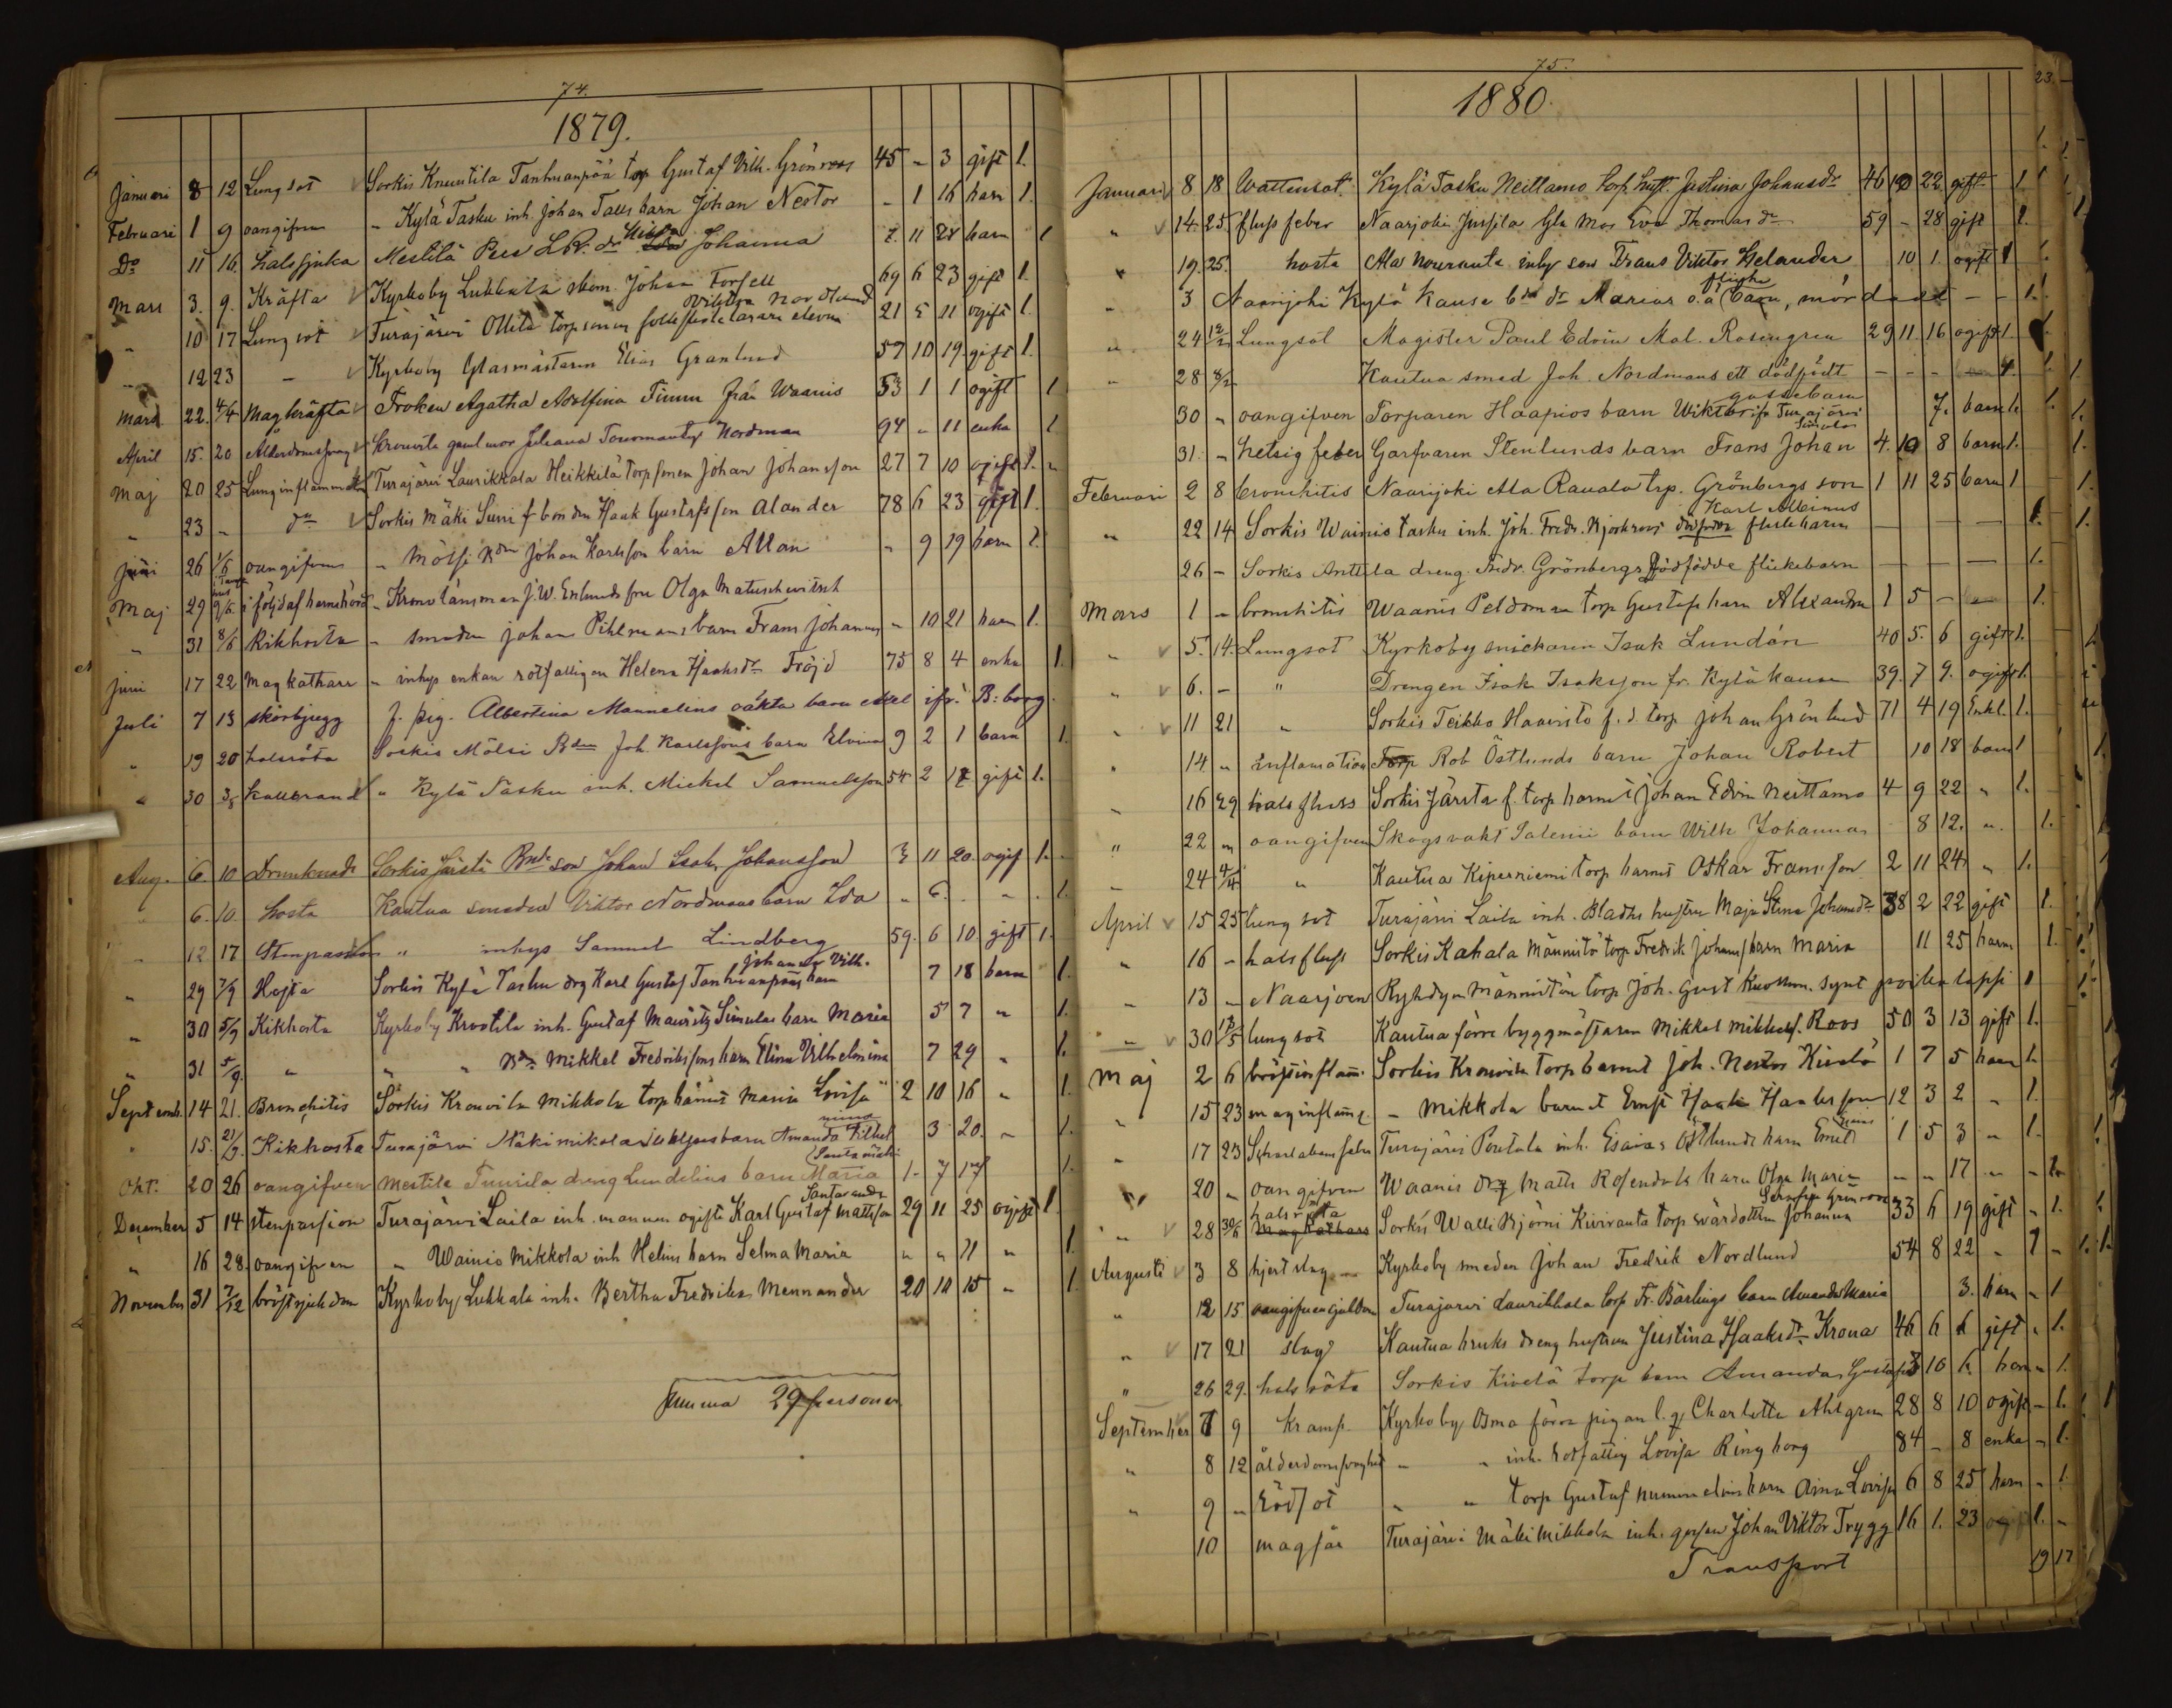 74.
1879.
Januari 8 12 Lungsot Sorkis Knuutila Tanhuanpää torp Gustaf Vilh. Grönroos 45 - 3 gift 1.
Februari 1 9 oangifven - Kylä Tasku inh. Johan Talls barn Johan Nestor - 1 16 barn 1.
Do 11 16 halssjuka Mestilä Pers dr Johanna 11 28 barn 1
Mars 3. 9. Kräfta Kyrkoby Lukkala Johan Forsell 69 6 23 gift 1.
" 10 17 Lungsot Turajärvi Ollila torpsonen eleven Viktor Nordlund 21 5 11 ogift 1.
" 12 23 - Kyrkoby Glasmästaren Elias Granlund 57 10 19. gift 1.
Mars 22. 4/4 Magkräfta Fröken Agatha Adolfina Finnu från Waanis 53 1 1 ogift 1
April 15. 20 Krouvila gamlmor Juliana Nordman 94 - 11 enka 1
Maj 20 25 Lunginflammation Turajärvi Laurikkala Heikkilä torpsonen Johan Johansson 27 7 10 ogift 1.
" 23 - do Sorkis Mäki Simi f bonden Isaak Gustafsson Alander 78 6 23 gift 1.
Juni 26 1/6 oangifven " Mölsi Bdn Johan Karlsson barn Allan " 9 19 barn 1.
Maj 29 9/6 i följd af barnsbörd - Kronolänsman J. W. Enlunds fru Olga Matuschewitsch
" 31 8/6 Kikhosta - smeden Johan Pihlmans barn Frans Johannes - 10 21 barn 1.
Juni 17 22 magkatharr - inhys enkan rotfattigen Helena Isaksdr Fröjd 75 8 4 enka 1.
Juli 7 13 skörbjugg f. pig. Albertina Mannelins oäkta barn Axel ifr. B:borg.
" 19 20 halsröta Sorkis Mölsi Bdn Joh. Karlssons barn Elvina 9 2 1 barn 1.
" 30 3/8 kallbrand " Kylä Tasku inh. Mickel Samuelsson 54 2 17 gift 1.
Aug. 6. 10 Drunknade Sorkis Järstä Bnde son Johan Isak Johansson 3 11 20. ogif 1.
" 6. 10. hosta Kautua smeden Viktor Nordmans barn Ida " 6. . " . 1.
" 12 17 Stenpassion " inhys Samuel Lindberg 59. 6 10. gift 1.
" 29 7/9 Sorkis Kylä Tasku drg Karl Gustaf Tanhuanpääs barn Johannes Vilh. 7 18 barn 1.
" 30 5/9 Kikhosta Kyrkoby Krootila inh. Gustaf Mauritz Simulas barn Maria 5 7 " 1.
" 31 5/9. " " " Bdn Mikkel Fredrikssons barn Elina Vilhelmina 7 29 " 1.
Septemb. 14 21. Bronchitis Sorkis Krouvila Mikkola torp barnet Maria Lovisa 2 10 16 " 1.
" 15. 21/9. Kikhosta Turajärvi Mäkimikola barn Amanda Vilhelmina 3 20. " 1.
Okt. 20 26 oangifven Mestilä Tuurila dreng Lundelius barn Maria Santamäki 1. 7 17 1.
December 5 14 stenpassion Turajärvi Laila inh. mannen ogifte Karl Gustaf Mattsson Santaranda 29 11 25 ogift 1
" 16 28. oangifven " Wainio Mikkola inh Helins barn Selma Maria " " 11 " 1.
November 31 7/12 bröstsjukdom Kyrkoby Lukkala inh. Bertha Fredrika Mennander 20 10 15 " 1.
Summa 29 personer
75.
23.
1880.
Januari 8 18 Wattusot Kylä Tasku Neittamo torp hust. Justina Johansdr 46 10 22 gift 1.
" 14. 25. fluss feber Naarjoki Jussila Gla Mor Eva Thomasdr 59 - 28 gift 1.
" 19. 25. hosta Ala Nouranta inhy son Frans Viktor Helander 10 1. ogift 1
" 3 Naarijoki Kylä Kause bde dr Marias o.ä. flicke barn, mördadt - - 1.
" 24 12/2 Lungsot Magister Paul Edvin Mal. Rosengren 29 11 16 ogift 1.
" 28 8/2 Kautua smed Joh. Nordmans ett dödfödt gossebarn - - - 1.
30 " oangifven Torparen Haapios barn Wiktor ifr Turajärvi 7. barn 1.
31. - hetsig feber Garfvaren Stenlunds barn Frans Johan 4. 10 8 barn 1.
Februari 2 8 bronchitis Naarijoki Ala Rauala trp. Grönbergs son Karl Albinus 1 11 25 barn 1
" 22 14 Sorkis Wainio tasku inh. Joh. Fredr. Björkroos dödfödda flickebarn — — — 1.
26 - Sorkis Anttila dreng Fredr. Grönbergs dödfödde flickebarn — — — 1.
Mars 1 - bronchitis Waanis Peldoman torp Gustafs barn Alexandra 1 5 - - 1.
" 5. 14. Lungsot Kyrkoby snickaren Isak Lundén 40 5. 6 gift 1.
" 6. - " Drengen Isak Isaksson fr. Kylä Kause 39. 7 9. ogift 1.
" 11 21 " Sorkis Teikko Haavisto f. d. torp Johan Grönlund 71 4 19 Enkl. 1.
" 14. " Inflamation Torp Rob Östlunds barn Johan Robert 10 18 barn 1
" 16 29 halsfluss Sorkis Järsta f. torp barnet Johan Edvin Neittamo 4 9 22 " 1.
" 22 " oangifven Skogsvakt Salenii barn Wilh Johannes 8 12. ". 1.
" 24 4/4 " Kautua Kiperniemi torp barnet Oskar Fransson 2 11 24 " 1.
April 15 25 lungsot Turajärvi Laila inh. Bladhs hustru Maja Stina Johansdr 38 2 22 gift 1.
" 16 - halsfluss Sorkis Kahala Männistö torp Fredrik Johanss barn Maria 11 25 barn 1.
" 13 - Naarjoen Ryhdyn Männistön torp Joh. Gust Kuollun. synt poika lapsi 1
" 30 12/5 lungsot Kautua förre byggmästaren Mikkel Mikkelss. Roos 50 3 13 gift 1.
Maj 2 6 bröstinflam. Sorkis Krouvila torp barnet Joh. Nestor Kivelä 1 7 5 barn 1.
" 15 23 maginflam. - Mikkola barnet Ernst Isaak Isaksson 12 3 2 " 1.
" 17 23 Scharlakansfeber Turajärvi Pentala inh. Esaias Östlunds barn Emel 1 5 3 " 1.
" 20 " oangifven Waanis drg Matts Rosendals barn Olga Maria - " 17 " - 1.
" 28 30/5 halsröta Sorkis Walli Björni Kivirauta torp svärdottern Johanna Serafia Grönroos 33 6 19 gift " 1.
Augusti 3 8 hjertslag - Kyrkoby smeden Johan Fredrik Nordlund 54 8 22 . 1 -
" 12 15 oangifven Turajärvi Laurikkala torp Fr. Bärlings barn Amanda Maria 3. barn " 1
" 17 21 slag Kautua bruks dreng hustrun Justina Isaaksdr Krona 46 6 6 gift " 1.
" 26 29. halsröta Sorkis Kivelä torp barn Amanda Gustafsd 3 10 6. barn " 1.
September 7 9 Kramp Kyrkoby Osma förra pigan l. g. Charlotta Ahlgren 28 8 10 ogift - 1.
" 8 12 ålderdomsvaghet - " inh. rotfattig Lovisa Ringborg 84 - 8 enka - 1.
" 9 " Rödsot - " torp Gustaf Nummelins barn Aina Lovisa 6 8 25 barn - 1
10 magsår Turajärvi Mäki Mikkola inh. gossen Johan Viktor Trygg 16 1. 23 og 1. -
Transport 19 17